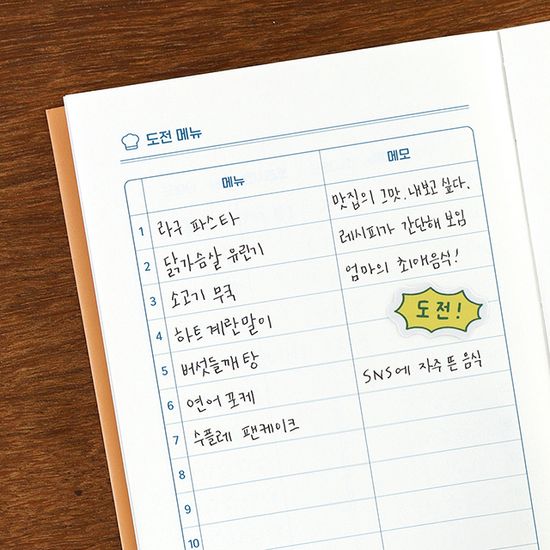 도전 메뉴
메뉴 메모
1 라구 파스타 맛집의 그맛. 내보고 싶다.
2 닭가슴살 유린기 레시피가 간단해 보임
3 소고기 무국 엄마의 최애음식!
4 하트 계란말이 도전!
5 버섯들깨탕
6 연어 포케 SNS에 자주 뜬 음식
7 수플레 팬케이크
8
9
10